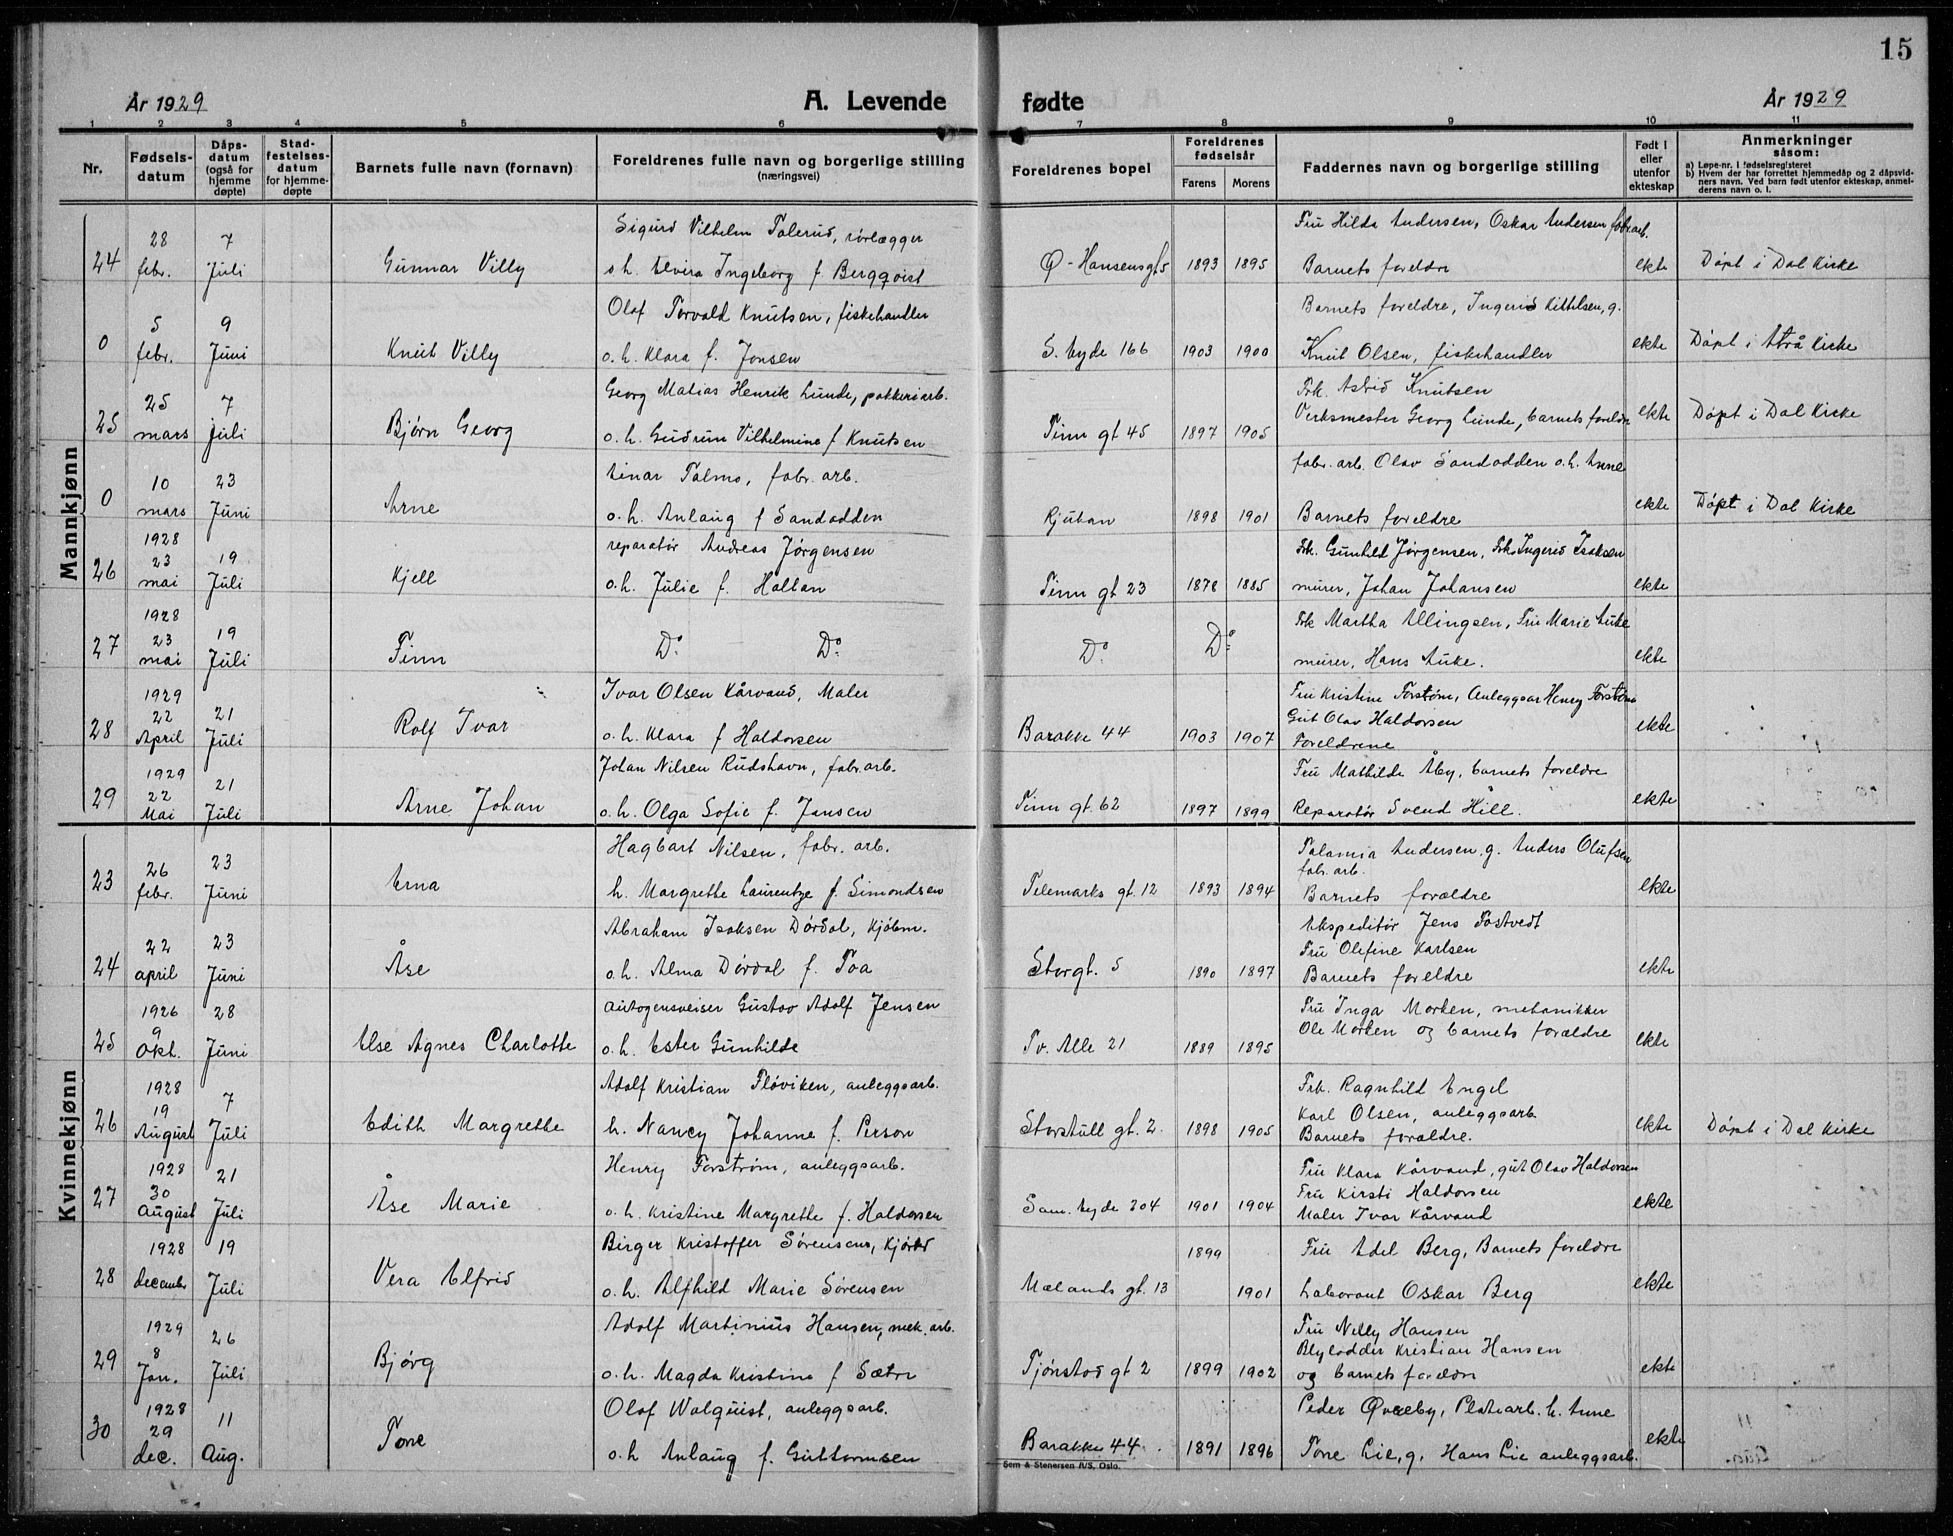 15
År 1929 A. Levende fødte År 1929
1 2 3 4 5 6 7 8 9 10 11
Nr. Fødsels-datum Dåps-datum (også for hjemme døpte) Stad-festelses-datum for hjemme-døpte Barnets fulle navn (fornavn) Foreldrenes fulle navn og borgerlige stilling (næringsvei) Foreldrenes bopel Foreldrenes fødselsår Farens Morens Faddernes navn og borgerlige stilling Født i eller utenfor ekteskap Anmerkninger såsom: a) Løpe-nr. i fødselsregisteret b) Hvem der har forrettet hjemmedåp og 2 dåpsvidners navn. Ved barn født utenfor ekteskap, anmelderens navn o. l.
Mannkjønn
28 7 Sigurd Vilhelm Talerud, rørlægger Fru Hilda Andersen, Oskar Andersen fabr.arb.
24 febr. Juli Gunnar Villy o.h. Elvira Ingeborg f. Bergqvist Ø-Hansensgt 5 1893 1895 Barnets foreldre ekte Døpt i Dal Kirke
5 9 Olaf Torvald Knutsen, fiskehandler Barnets foreldre, Ingerid Kittilsen, g.
0 febr. Juni Knut Villy o.h. Klara f. Jonsen S. byde 166 1903 1900 Knut Olsen, fiskehandler ekte Døpt i Atrå Kirke
25 7 Georg Matias Henrik Lunde, pakkeriarb. Frk. Astrid Knutsen
25 mars juli Bjørn Georg o.h. Gudrun Vilhelmine f Knutsen Tinn gt 45 1897 1905 Verksmester Georg Lunde, barnets foreldre ekte Døpt i Dal Kirke
10 23 Einar Palmo, fabr. arb. fabr. arb. Olav Sandodden o.h. Anne
0 mars Juni Arne o.h. Anlaug f Sandodden Rjukan 1898 1901 Barnets foreldre ekte Døpt i Dal Kirke
1928 reparatør Andreas Jørgensen Frk. Gunhild Jørgensen, Frk. Ingerid Isaksen
26 23 mai 19 Juli Kjell o.h. Julie f. Hallan Tinn gt 23 1878 1885 murer, Johan Johansen ekte
1928 Frk Martha Ellingsen, Fru Marie Auke
27 23 mai 19 Juli Finn Do Do Do Do murer, Hans Auke. ekte
1929 Ivar Olsen Kårvand, Maler Fru Kristine Forstrøm, Anleggsar Henry Forstrøm
28 22 April 21 Juli Rolf Ivar o.h. Klara f Haldorsen Barakke 44 1903 1907 Gut Olav Haldorsen Foreldrene ekte
1929 Johan Nilsen Rudshavn, fabr.arb. Fru Mathilde Aby, barnets foreldre
29 22 Mai 21 Juli Arne Johan o.h. Olga Sofie f. Jansen Tinn gt. 62 1897 1899 Reparatør Svend Hill. ekte
Kvinnekjønn
26 23 Hagbart Nilsen, fabr. arb. Andersen, g. Anders Olufsen fabr. arb.
23 febr. Juni Erna h. Margrethe Laurentze f. Simondsen Telemarks gt. 12 1893 1894 Barnets forældre ekte
22 23 Abraham Isaksen Dørdal, Kjøbm. Ekspeditør Jens Tostvedt
Fru Olefine Karlsen
24 april Juni Åse o.h. Alma Dørdal f. Toa Storgt. 5 1890 1897 Barnets foreldre ekte
1926 28 autogensveiser Gustav Adolf Jensen Fru Inga Morken, mekanikker
25 9 Okt. Juni Else Agnes Charlotte o.h. Ester Gunhilde Tv. Alle 21 1889 1895 Ole Morken og barnets forældre ekte
1928 7 Adolf Kristian Fløviken, anleggsarb. Frk. Ragnhild Engel
26 19 August Juli Edith Margrethe h. Nancy Johanne f. Person Storstull gt. 2. 1898 1905 Karl Olsen, anleggsarb Barnets forældre. ekte Døpt i Dal Kirke
1928 21 Henry Forstrøm, anleggsarb. Fru Klara Kårvand, gut Olav Haldorsen
Fru Kirsti Haldorsen
27 30 August Juli Åse Marie o.h. Kristine Margrethe f. Haldorsen Sam. byde 204 1901 1904 Maler Ivar Kårvand ekte
1928 19 Birger Kristoffer Sørensens, 1899 Fru Edel Berg, Barnets foreldre
28 december Juli Vera Elfrid o.h. Alfhild Marie Sørensen Mælands gt. 13 1901 Laborant Oskar Berg ekte
1929 26 Adolf Martinius Hansen, mek. arb. Fru Nelly Hansen
Blylodder Kristian Hansen
29 8 Jan. Juli Bjørg o.h. Magda Kristine f Sætre Tjønstad gt 2 1899 1902 og barnets foreldre ekte
1928 11 Olaf Walquist, anleggsarb. Peder Øvreby, Platearb. h. Anne
30 29 dec. Aug. Tone o.h Anlaug f. Guttormsen Barakke 44 1891 1896 Tone Lie, g. Hans Lie anleggsarb. ekte
Sem & Stenersen A/S, Oslo.